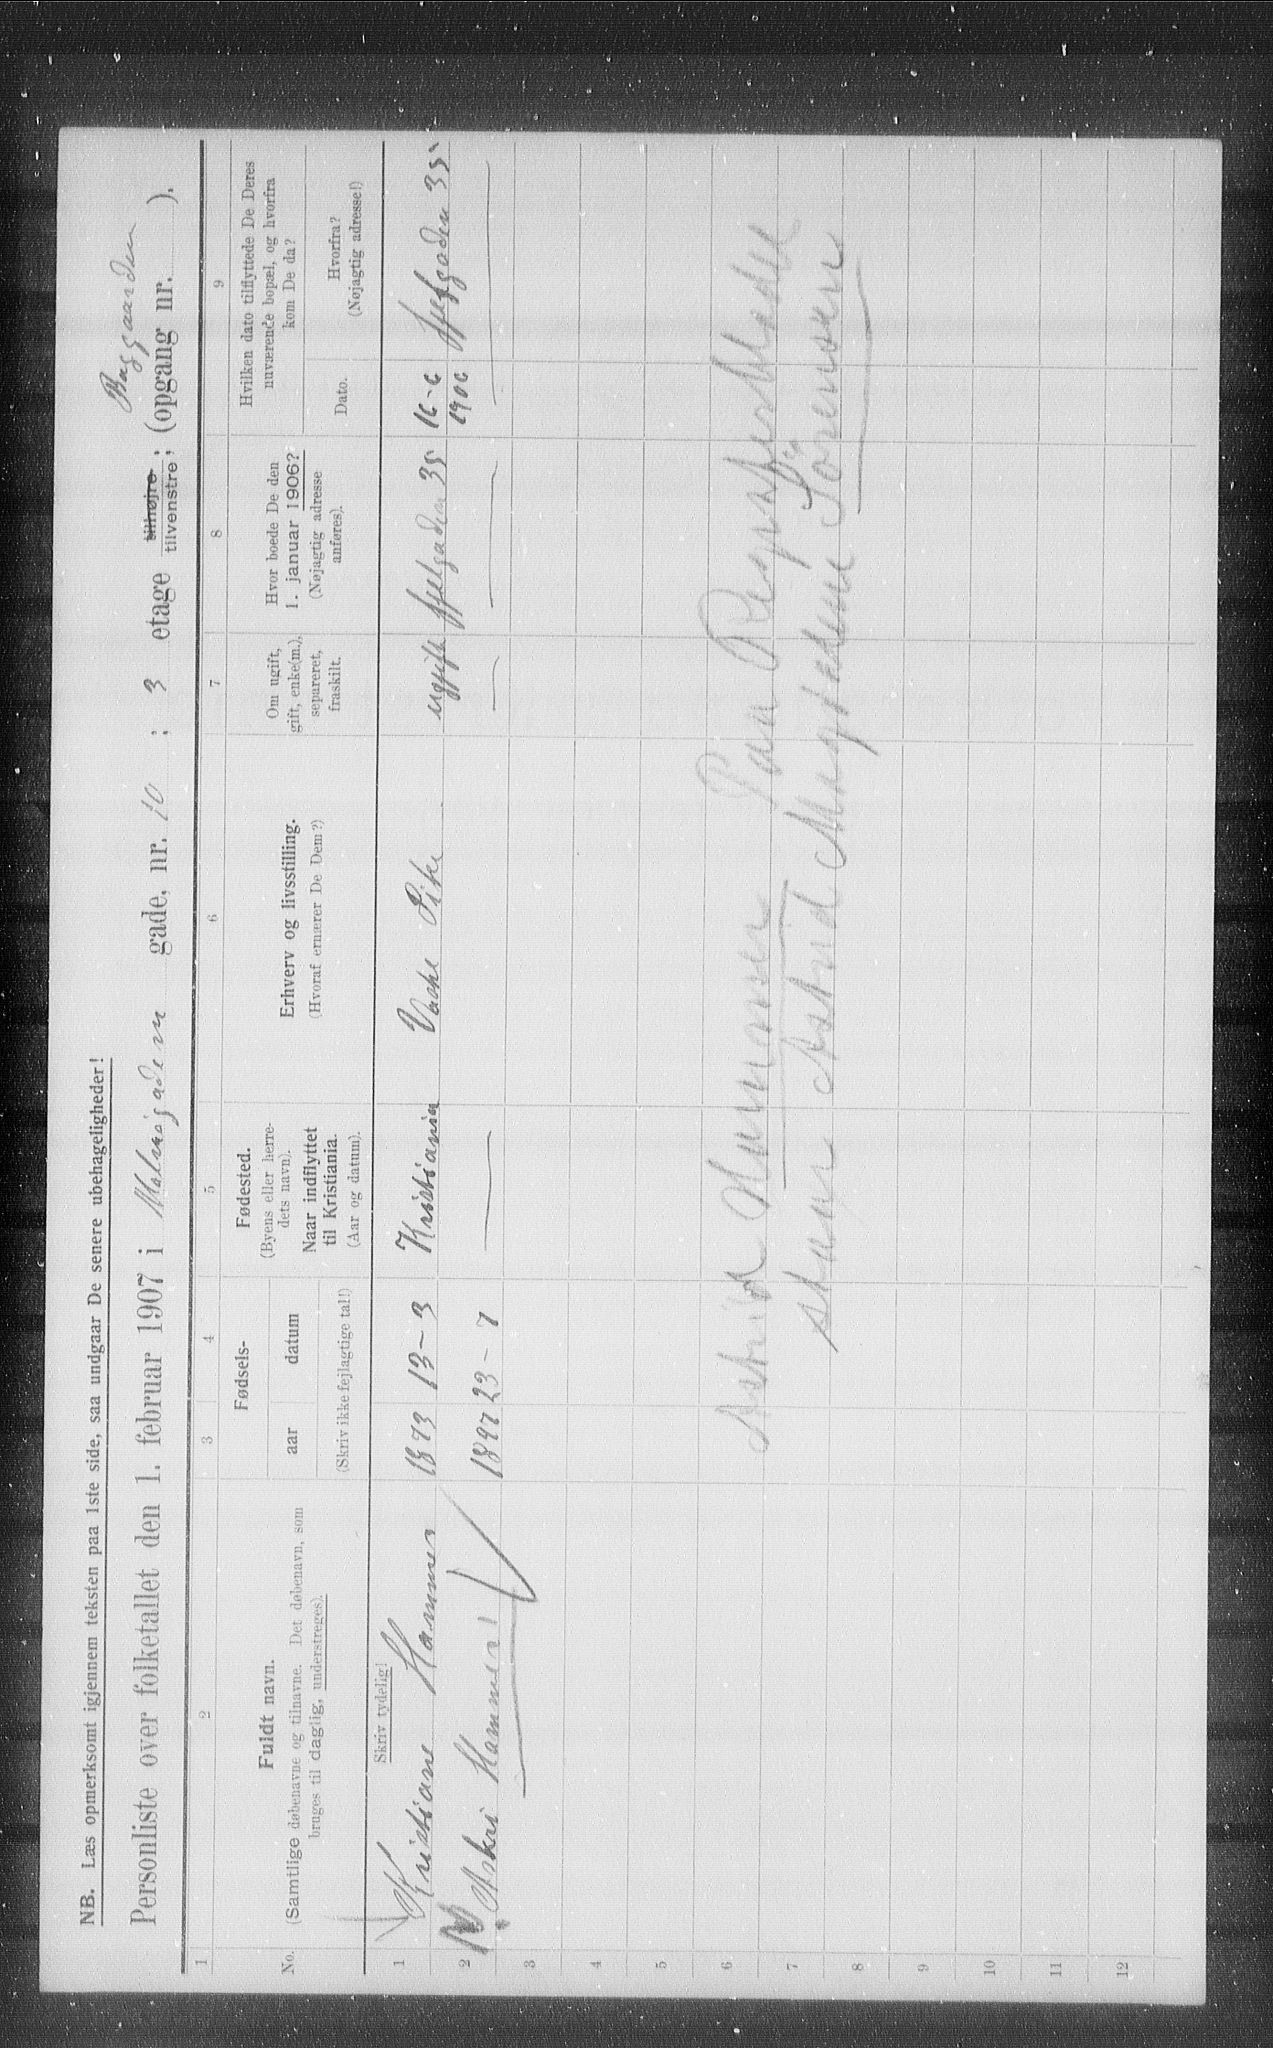 NB. Læs opmerksomt igjennem teksten paa 1ste side, saa undgaar De senere ubehageligheder!
Baggaarden
Personliste over folketallet den 1. februar 1907 i Malmøgaden gade, nr. 10 ; 3 etage tilhøjre tilvenstre; (opgang nr. ).
1 2 3 4 5 6 7 8 9
No.
Fuldt navn.
(Samtlige døbenavne og tilnavne. Det døbenavn, som
bruges til daglig, understreges).
Fødsels-
aar datum
(Skriv ikke fejlagtige tal!)
Fødested.
(Byens eller herre-
dets navn).
Naar indflyttet
til Kristiania.
(Aar og datum).
Erhverv og livsstilling.
(Hvoraf ernærer De Dem?)
Om ugift,
gift, enke(m.),
separeret,
fraskilt.
Hvor boede De den
1. januar 1906?
(Nøjagtig adresse
anføres).
Hvilken dato tilflyttede De Deres
nuværende bopæl, og hvorfra
kom De da?
Dato.
Hvorfra?
(Nøjagtig adresse!)
Skriv tydelig!
1 Kristiane Hammer 1873 13-3 Kristiania Vaske Pike ugift fjelgaden 35 16-6 1906 fjelgaden 35
2 Askri Hammer! 1897 23-7
3
4
5
6
7
8
9
10
11
12
Astrid Hammer Paa Registerbladet
staar Astrid Magdalene Sörensen